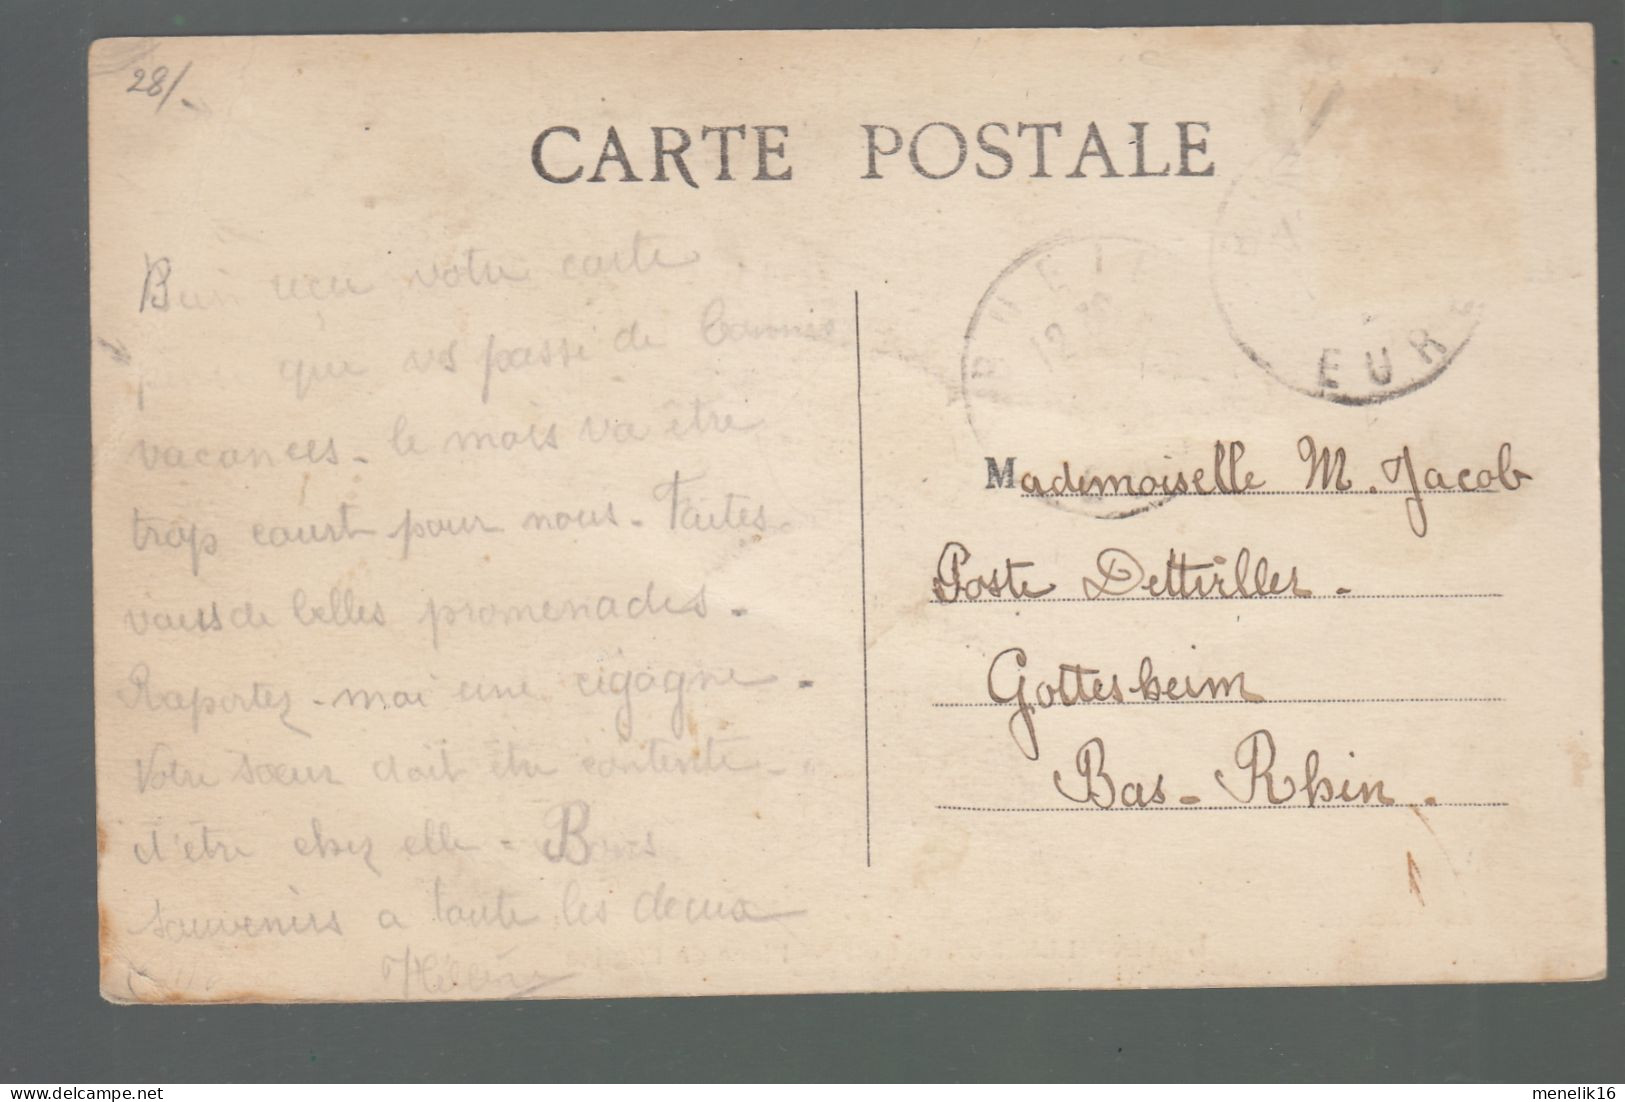 28/-
CARTE POSTALE
Bien reçu votre carte
que vs passé de bonnes
vacances - le mois va être
trop court pour nous - Faites
vous de belles promenades -
Raportez-moi une cigogne -
Votre sœur doit être contente -
d'être chez elle - Bons
souvenirs a toute les deux
Hélène
EUR
12
Mademoiselle M. Jacob
Poste Dettviller -
Gottesheim
Bas-Rhin.
menelik16